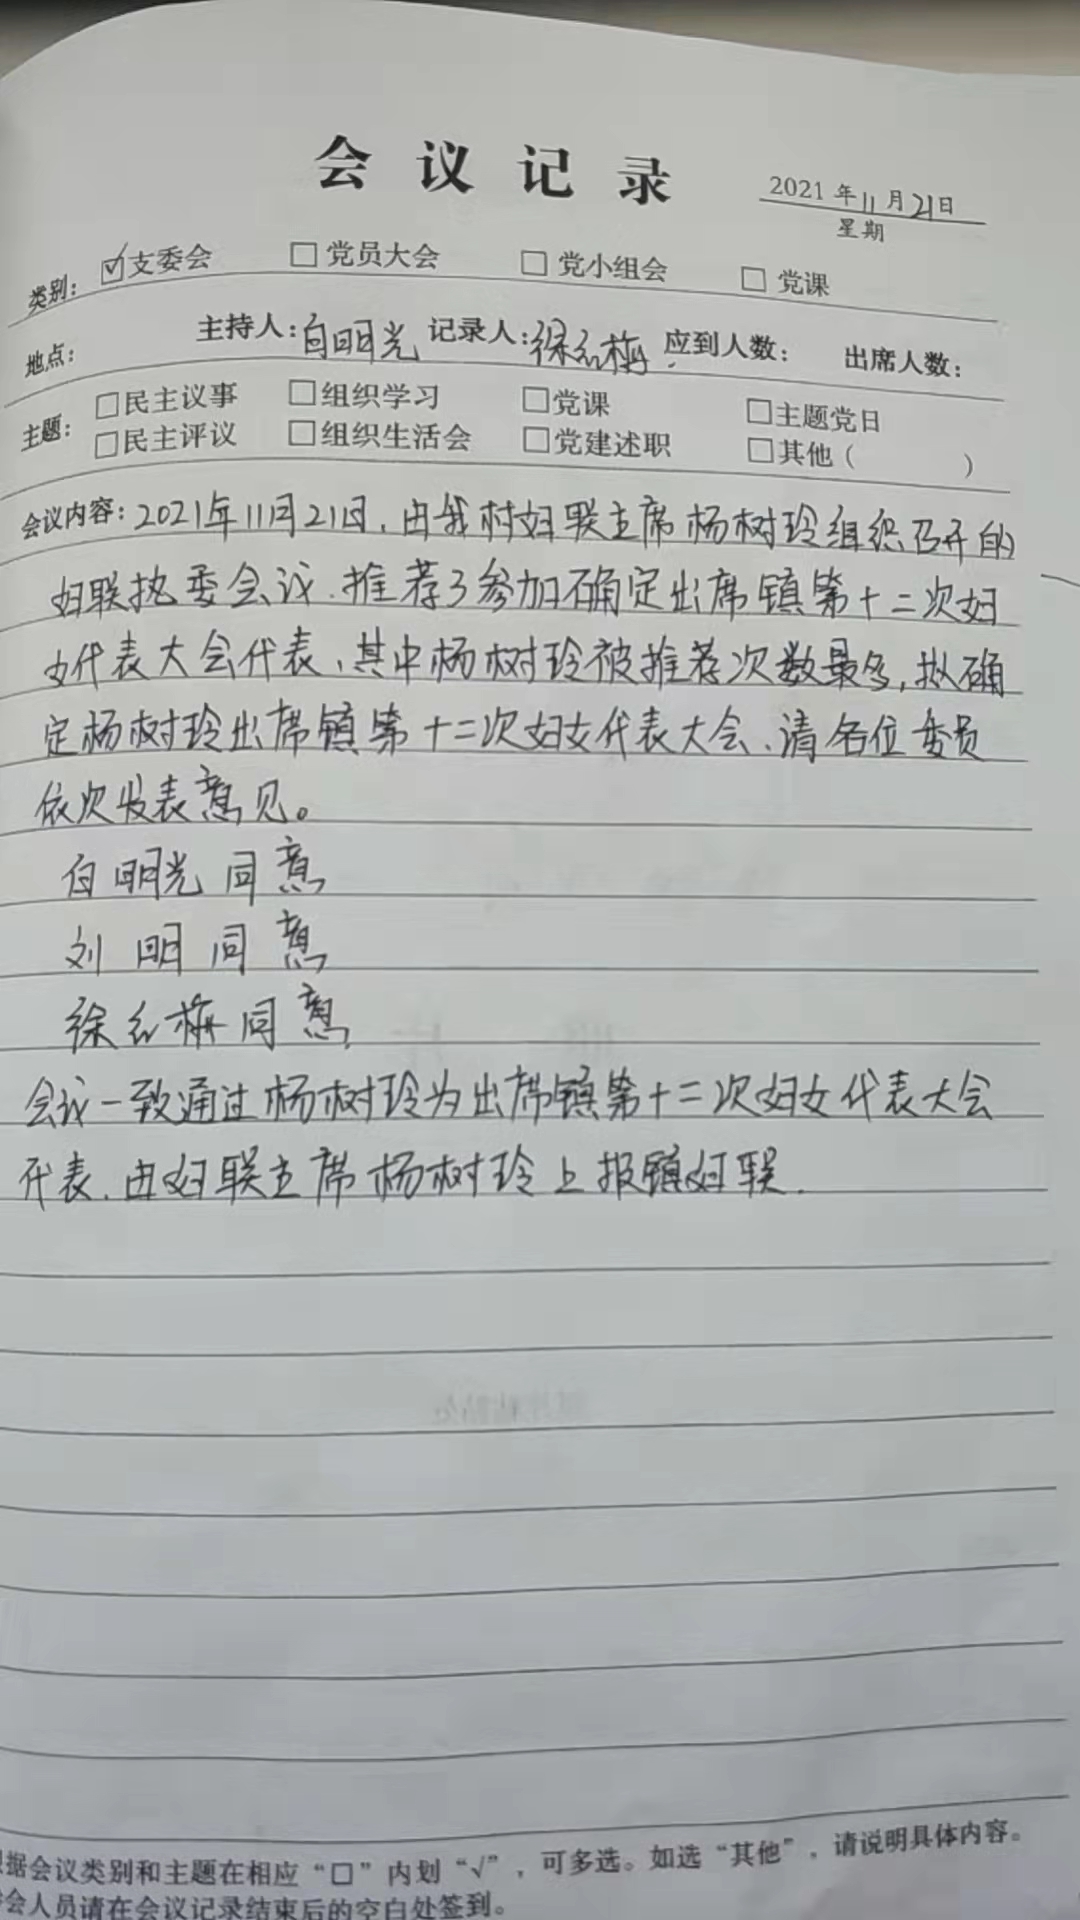 会议记录
2021年11月21日
星期
类别：☑支委会 □党员大会 □党小组会 □党课
地点： 主持人：白明光 记录人：徐红梅. 应到人数： 出席人数：
主题： □民主议事 □组织学习 □党课 □主题党日
□民主评议 □组织生活会 □党建述职 □其他（ ）
会议内容：2021年11月21日，由我村妇联主席杨树玲组织召开的
妇联执委会议，推荐了参加确定出席镇第十二次妇
女代表大会代表、其中杨树玲被推荐次数最多，拟确
定杨树玲出席镇第十二次妇女代表大会、请各位委员
依次发表意见。
白明光同意
刘明同意
徐红梅同意.
会议一致通过杨树玲为出席镇第十二次妇女代表大会
代表、由妇联主席杨树玲上报镇妇联.
据会议类别和主题在相应“□”内划“√”，可多选。如选“其他”，请说明具体内容。
会人员请在会议记录结束后的空白处签到。